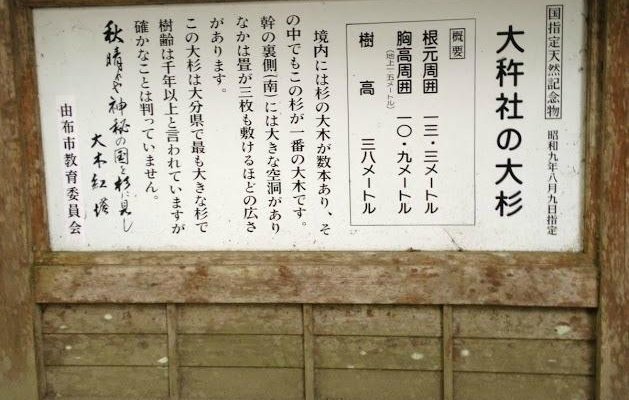 国指定天然記念物
昭和九年八月九日指定
大杵社の大杉
概要
根元周囲 一三・三メートル
胸高周囲 一〇・九メートル
(地上一・五メートル)
樹高 三八メートル
境内には杉の大木が数本あり、そ
の中でもこの杉が一番の大木です。
幹の裏側(南)には大きな空洞があり
なかは畳が三枚も敷けるほどの広さ
があります。
この大杉は大分県で最も大きな杉で
樹齢は千年以上と言われていますが
確かなことは判っていません。
秋晴や神秘の国を杉に見し
大木紅塔
由布市教育委員会